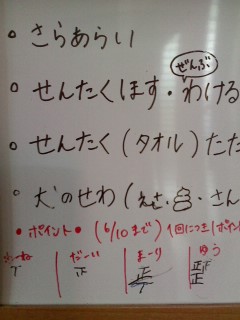 ・さらあらい
ぜんぶ
・せんたくほす・わける
・せんたく(タオル)たた
・犬のせわ(えさ・
・さん
・ポイント・(6/10まで)1回につき1ポイン
だーい
まーり
ゆう
T
正
正
正
正